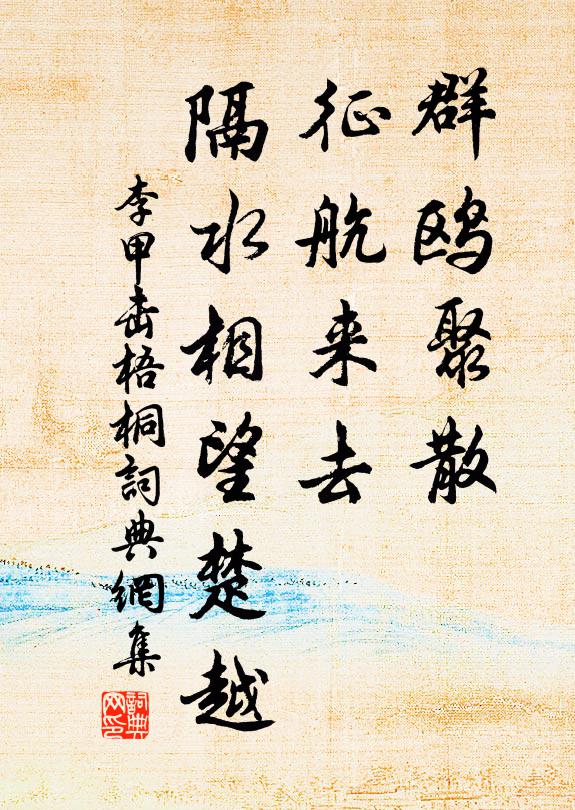 群鸥聚散
征航来去
隔水相望楚越
李甲击梧桐詞典網集
詞典
网印